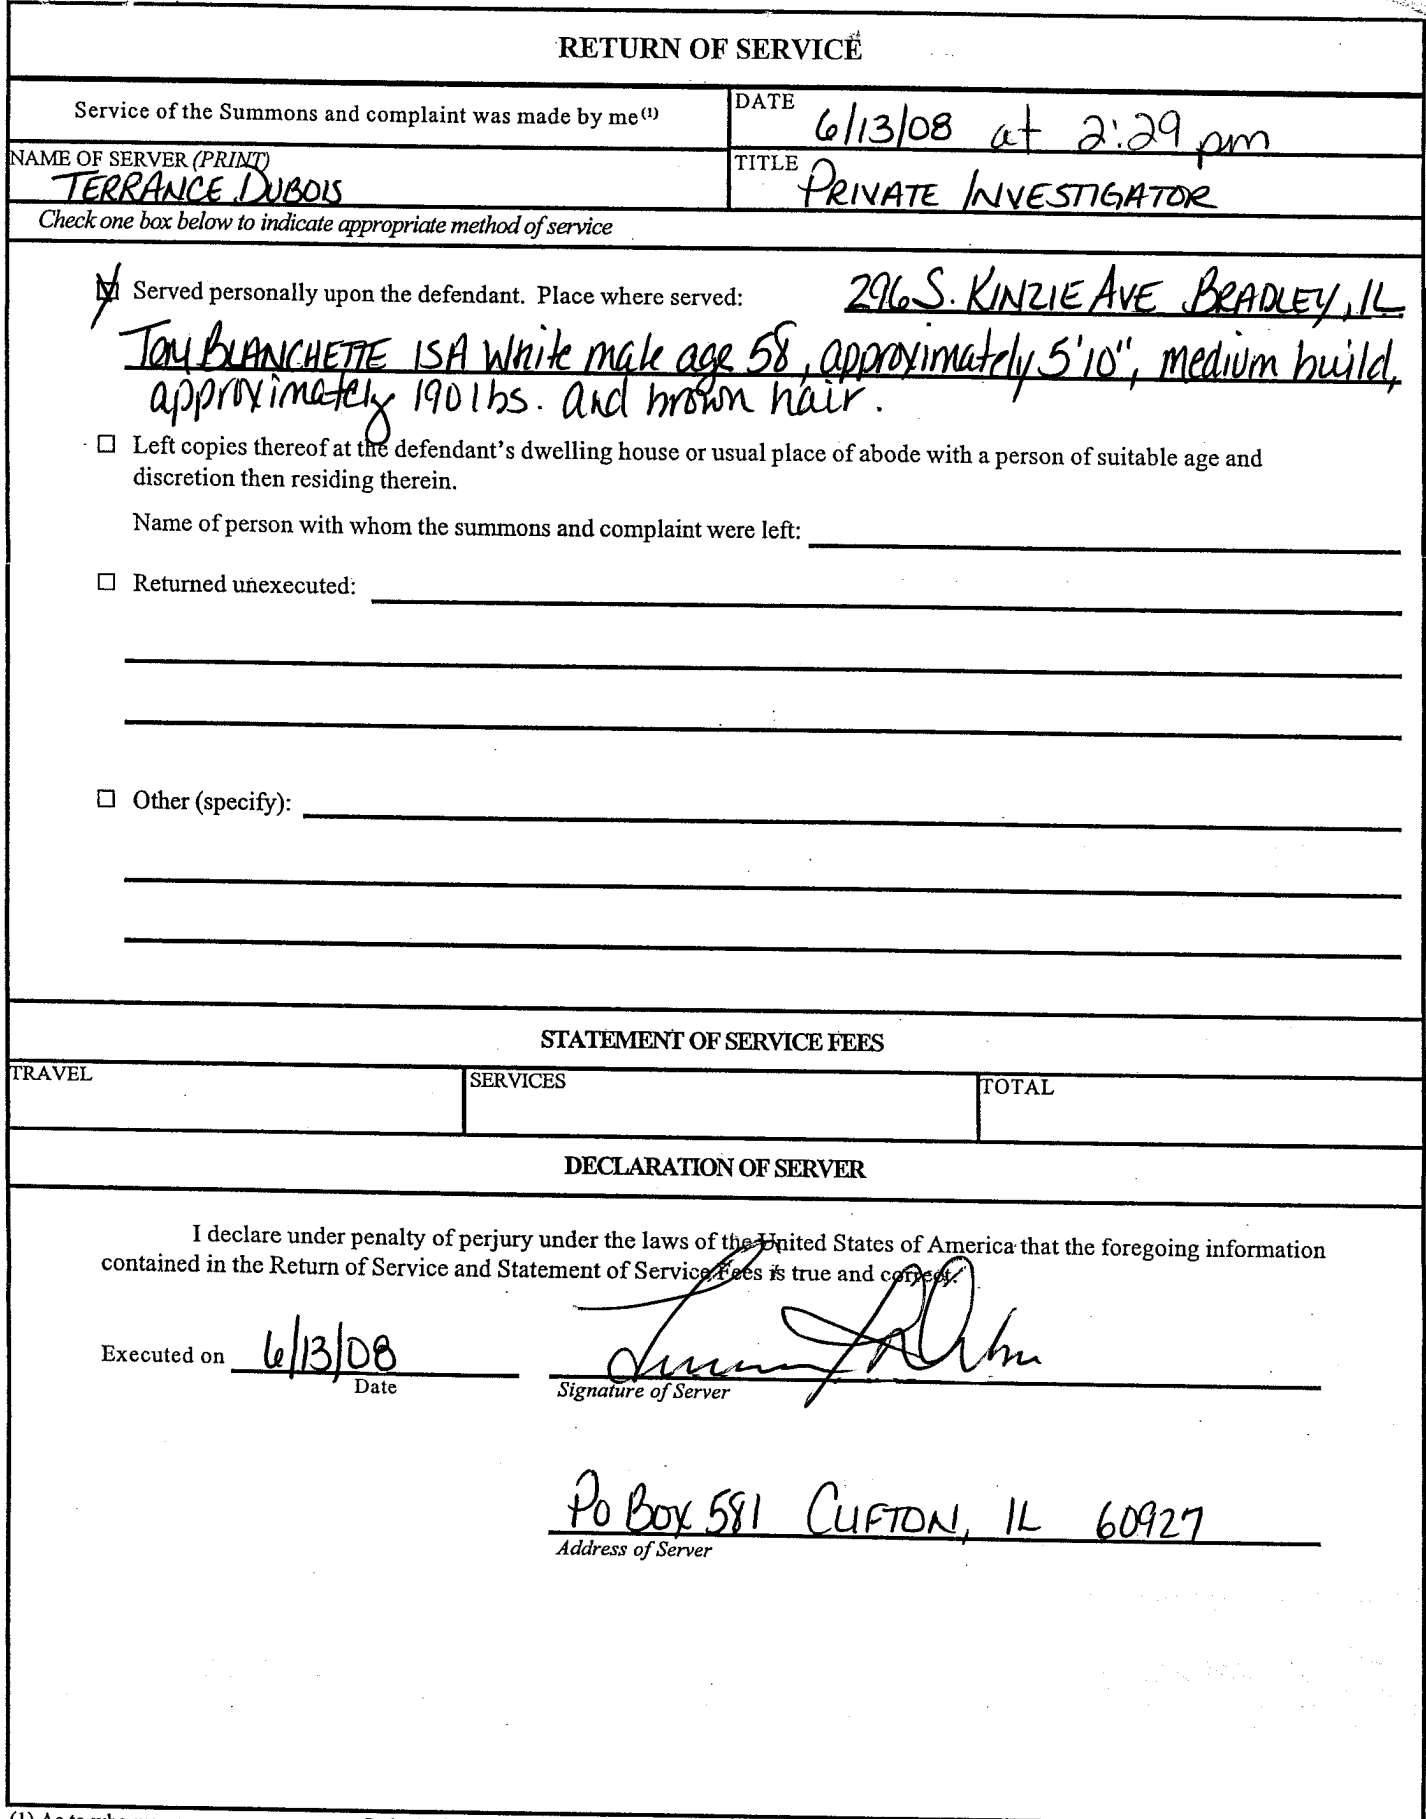 RETURN OF SERVICE
Service of the Summons and complaint was made by me(1)
DATE 6/13/08 at 2:29 pm
NAME OF SERVER (PRINT)
TERRANCE DUBOIS
TITLE PRIVATE INVESTIGATOR
Check one box below to indicate appropriate method of service
Served personally upon the defendant. Place where served: 296 S. KINZIE AVE BRADLEY, IL
TOM BLANCHETTE IS A White male age 58, approximately 5'10", medium build,
approximately 190 lbs. and brown hair.
☐ Left copies thereof at the defendant's dwelling house or usual place of abode with a person of suitable age and
discretion then residing therein.
Name of person with whom the summons and complaint were left:
☐ Returned unexecuted:
☐ Other (specify):
STATEMENT OF SERVICE FEES
TRAVEL SERVICES TOTAL
DECLARATION OF SERVER
I declare under penalty of perjury under the laws of the United States of America that the foregoing information
contained in the Return of Service and Statement of Service Fees is true and correct.
Executed on 6/13/08
Date
Signature of Server
PO BOX 581 CLIFTON, IL 60927
Address of Server